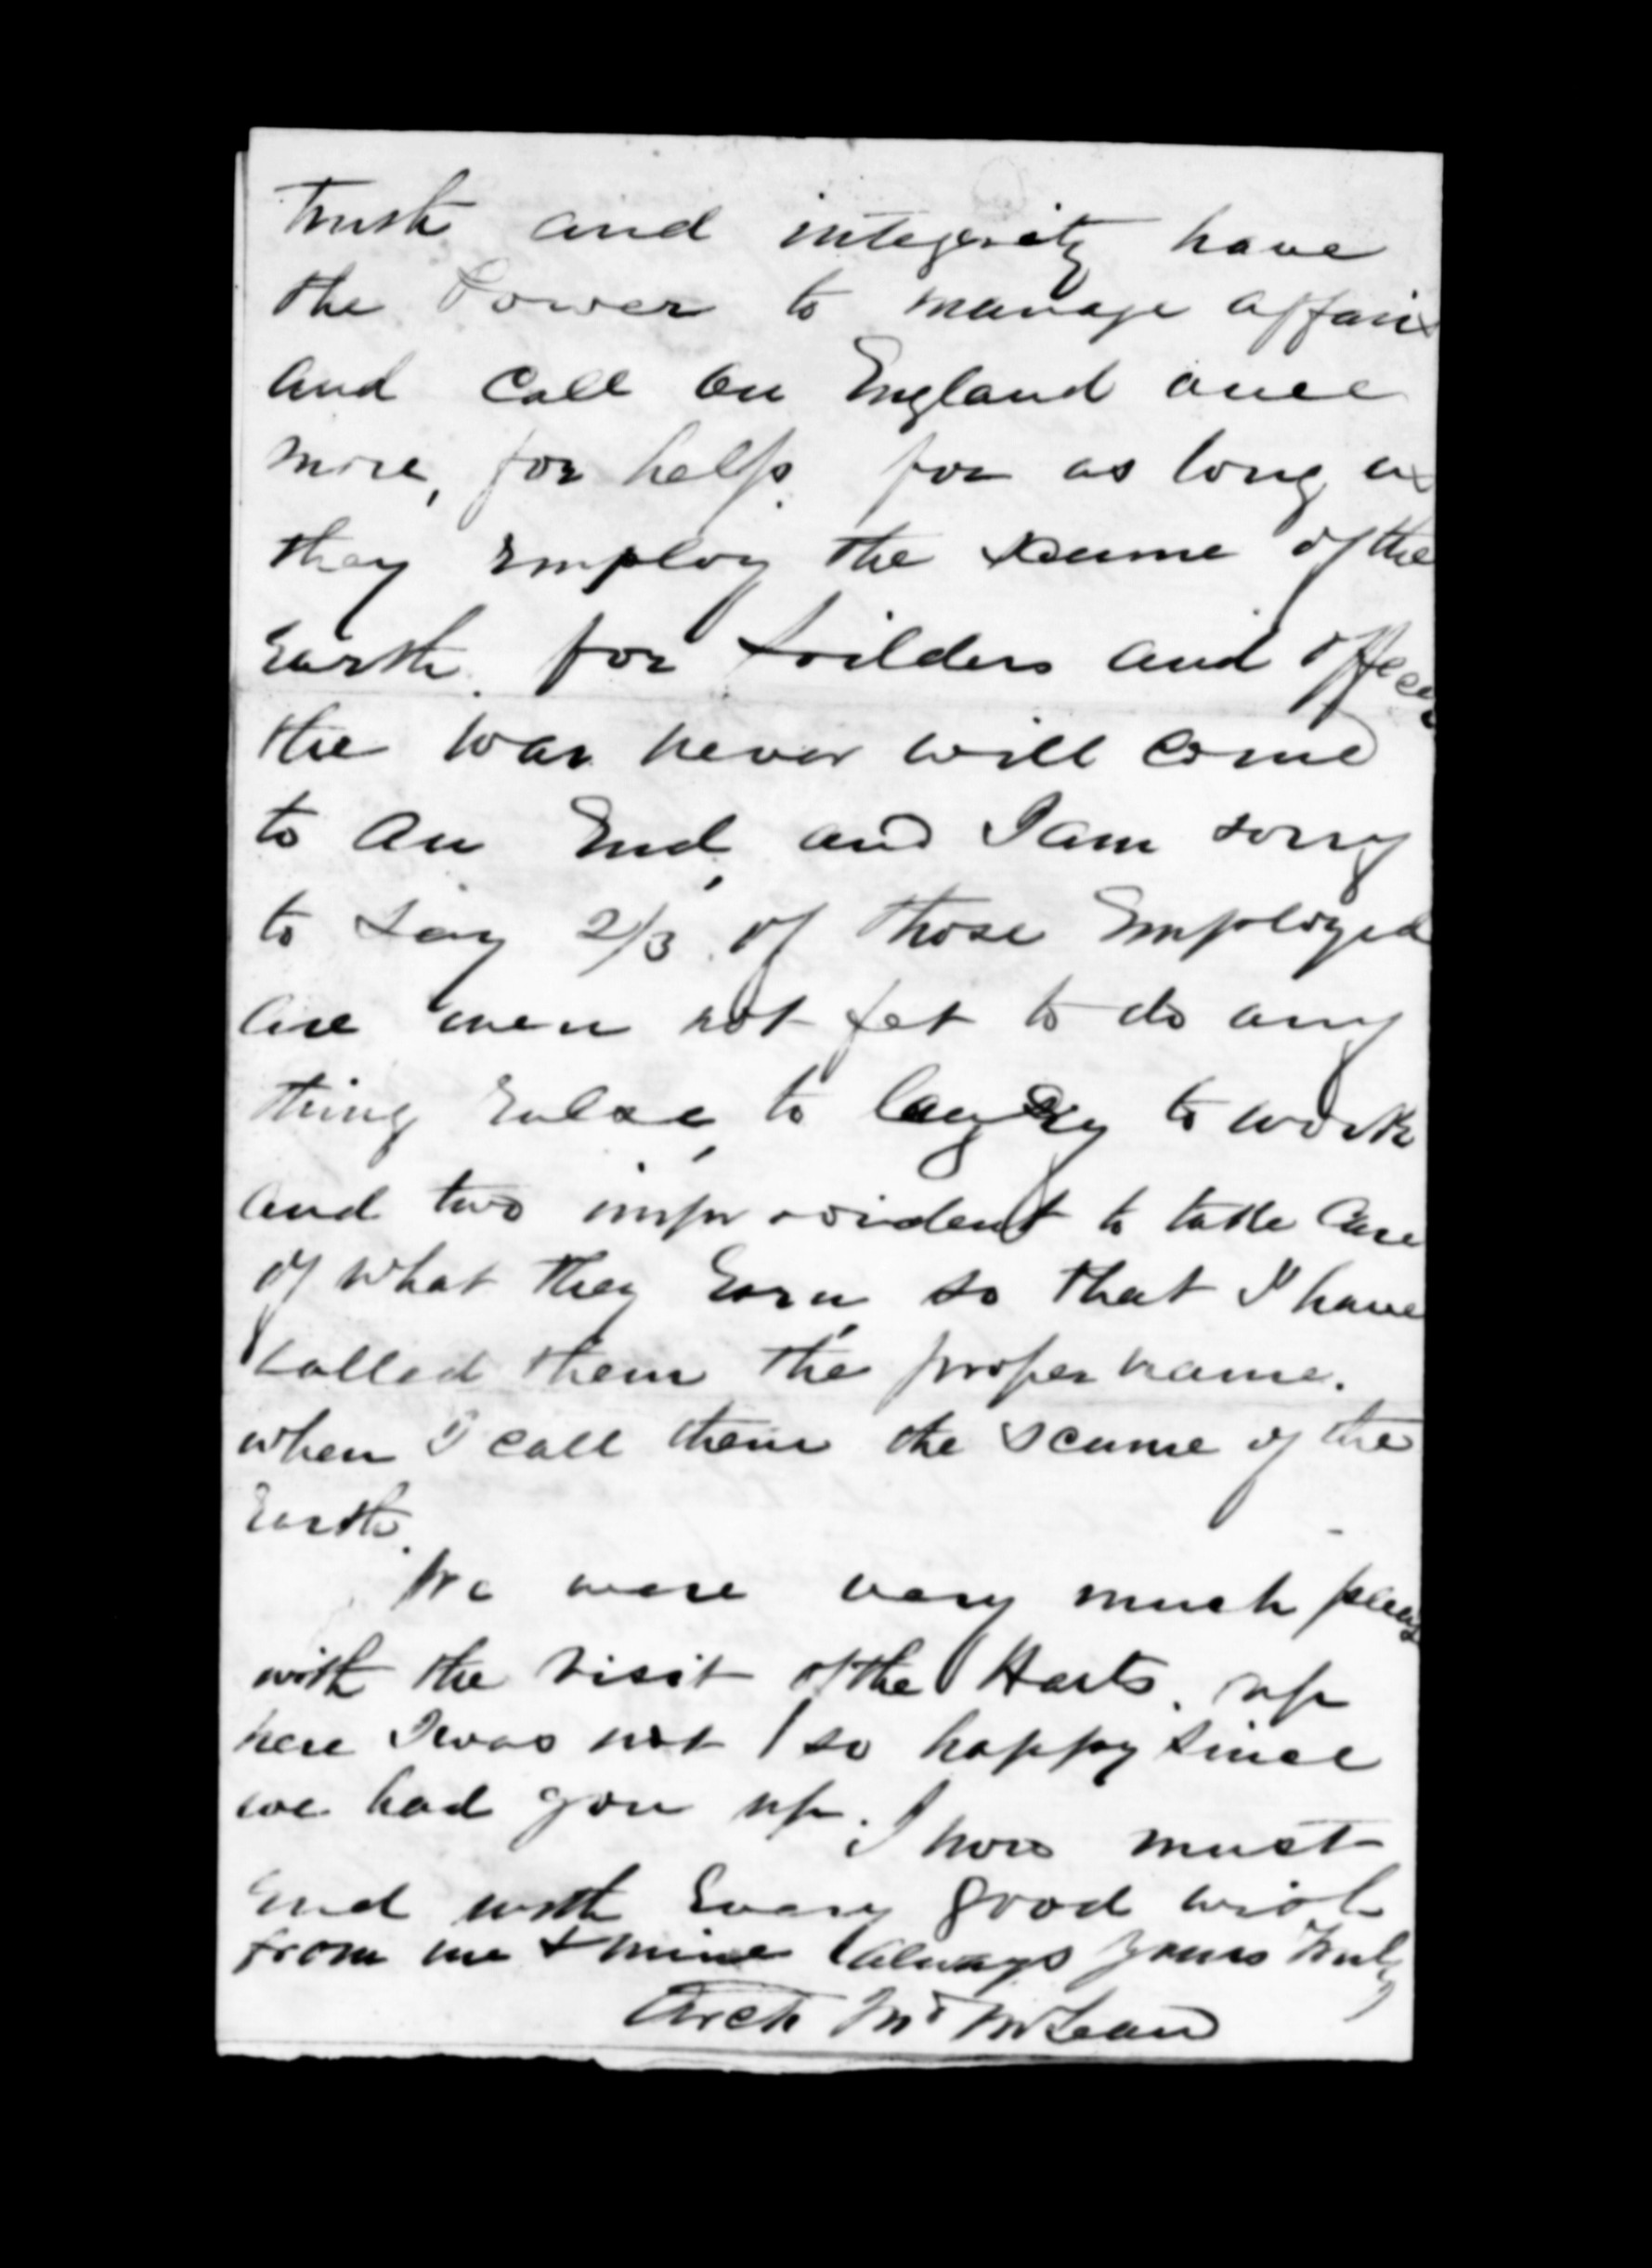 trusth and integerity have
the Power to manage affairs
and Call on England once
more, for help. for as long as
they Employ the scume of the
Earth. for soilders and officers
the war never will come
to an End, and I am sorry
to say 2/3 of those Employed
are men not fet to do any
thing Eulse, to layzy to work
and two improvident to take Care
of what they Earn, so that I have
called them the proper name.
when I call them the scume of the
Earth.
We were very much pleas
with the visit of the Harts. up
here I was not so happy since
we had you up. I now must
End with Every good wish
from me & mine always yours truly
Arch Mt McLean